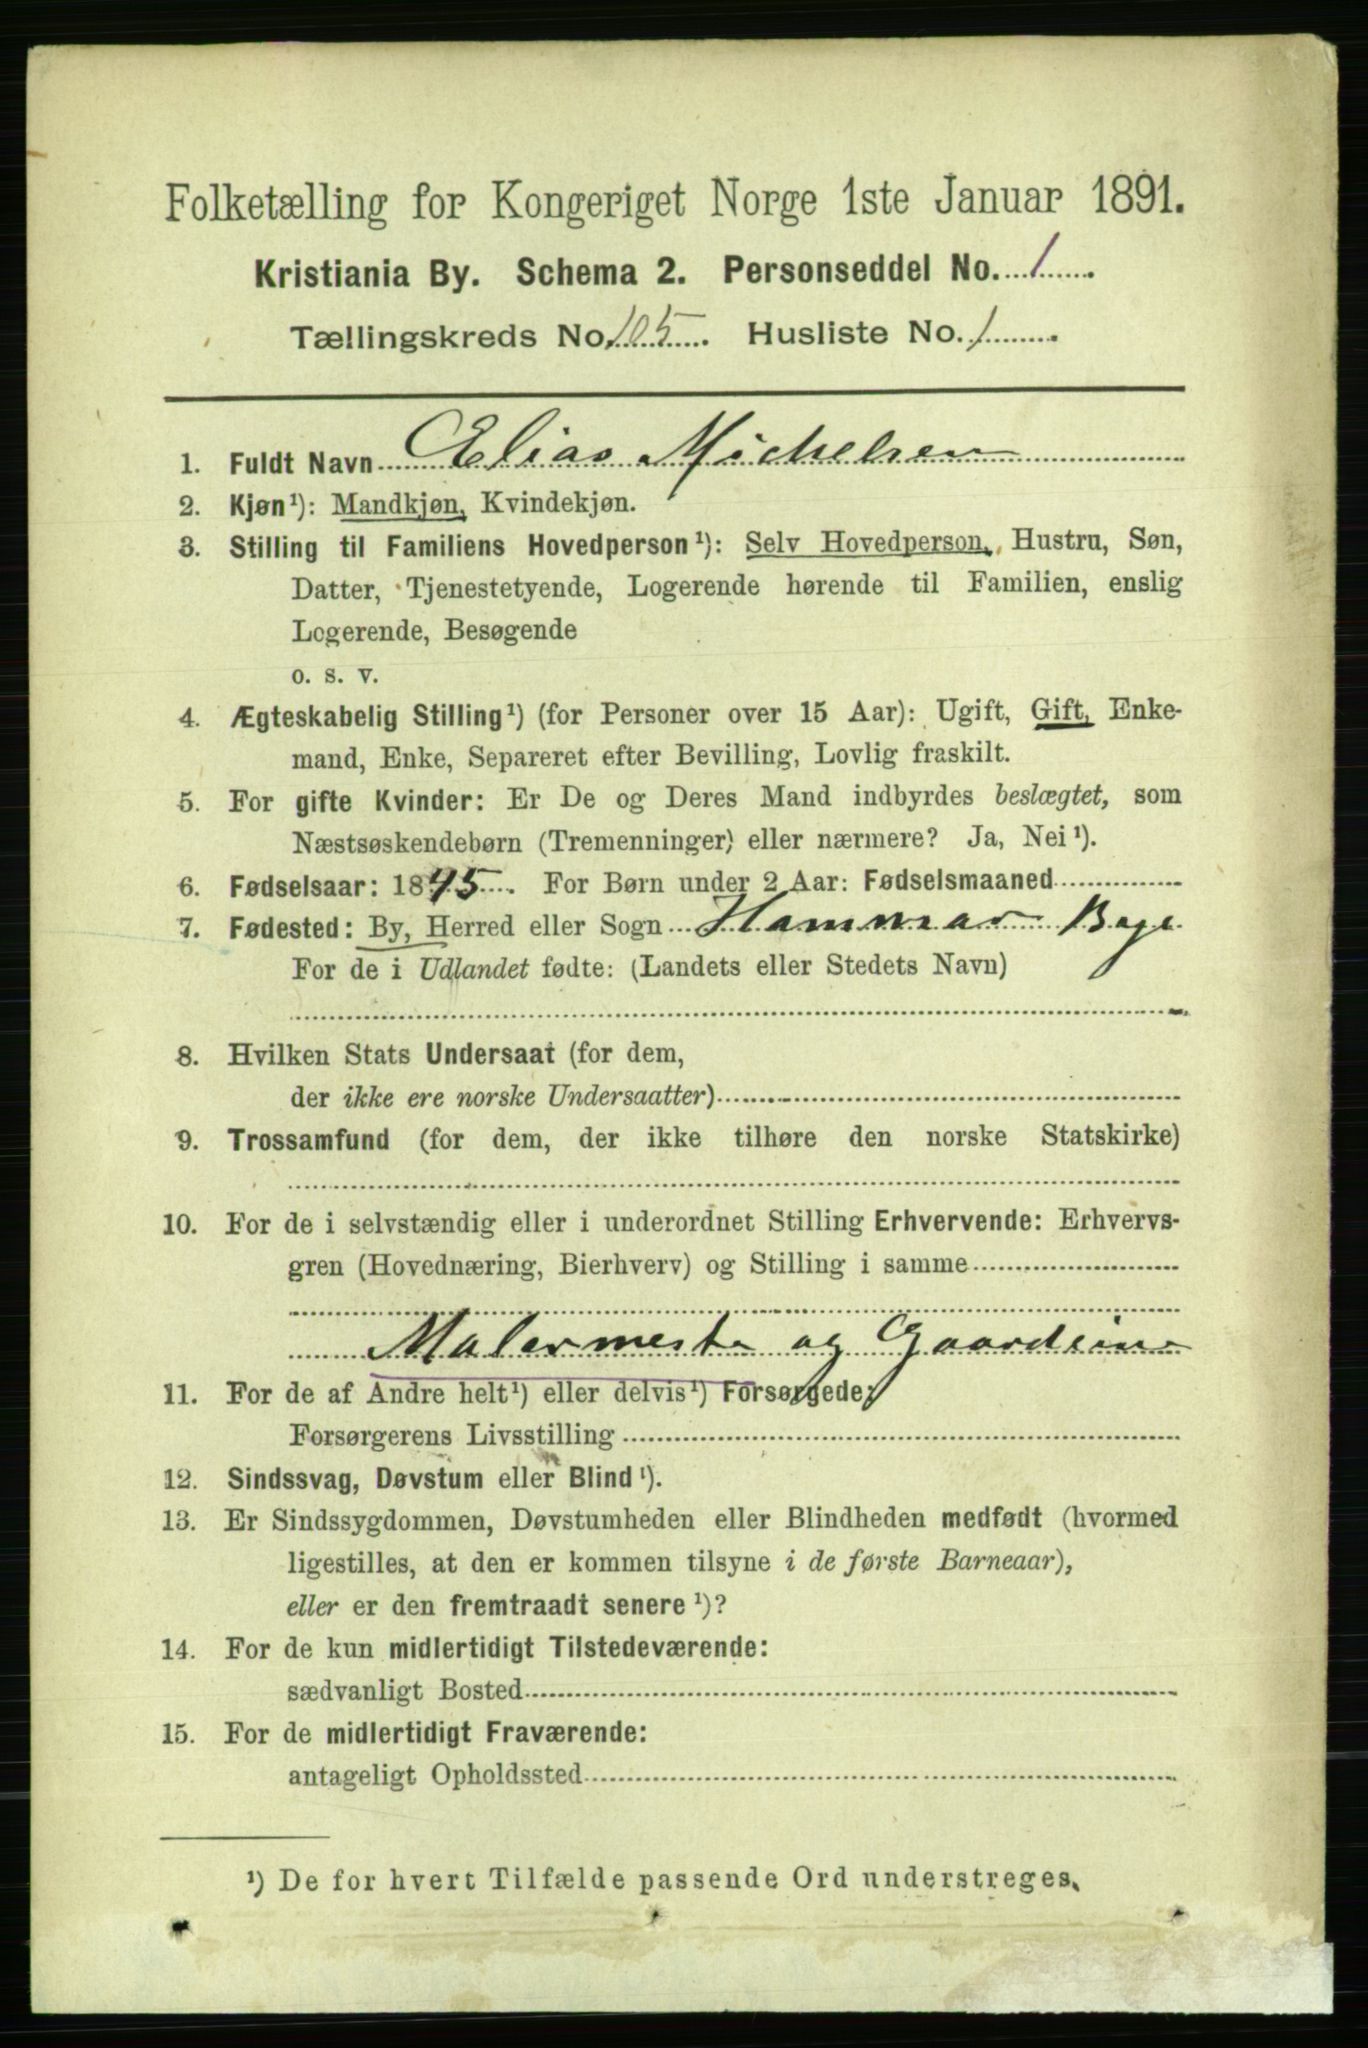 Folketælling for Kongeriget Norge 1ste Januar 1891.
Kristiania By. Schema 2. Personseddel No. 1
Tællingskreds No. 105. Husliste No. 1
1. Fuldt Navn Elias Michelsen
2. Kjøn¹): Mandkjøn, Kvindekjøn.
3. Stilling til Familiens Hovedperson¹): Selv Hovedperson, Hustru, Søn,
Datter, Tjenestetyende, Logerende hørende til Familien, enslig
Logerende, Besøgende
o. s. v.
4. Ægteskabelig Stilling¹) (for Personer over 15 Aar): Ugift, Gift, Enke-
mand, Enke, Separeret efter Bevilling, Lovlig fraskilt.
5. For gifte Kvinder: Er De og Deres Mand indbyrdes beslægtet, som
Næstsøskendebørn (Tremenninger) eller nærmere? Ja, Nei¹).
6. Fødselsaar: 1845. For Børn under 2 Aar: Fødselsmaaned
7. Fødested: By, Herred eller Sogn Hammar
For de i Udlandet fødte: (Landets eller Stedets Navn)
8. Hvilken Stats Undersaat (for dem,
der ikke ere norske Undersaatter)
9. Trossamfund (for dem, der ikke tilhøre den norske Statskirke)
10. For de i selvstændig eller i underordnet Stilling Erhvervende: Erhvervs-
gren (Hovednæring, Bierhverv) og Stilling i samme
Malermester og
11. For de af Andre helt¹) eller delvis¹) Forsørgede:
Forsørgerens Livsstilling
12. Sindssvag, Døvstum eller Blind¹).
13. Er Sindssygdommen, Døvstumheden eller Blindheden medfødt (hvormed
ligestilles, at den er kommen tilsyne i de første Barneaar),
eller er den fremtraadt senere¹)?
14. For de kun midlertidigt Tilstedeværende:
sædvanligt Bosted
15. For de midlertidigt Fraværende:
antageligt Opholdssted
¹) De for hvert Tilfælde passende Ord understreges.